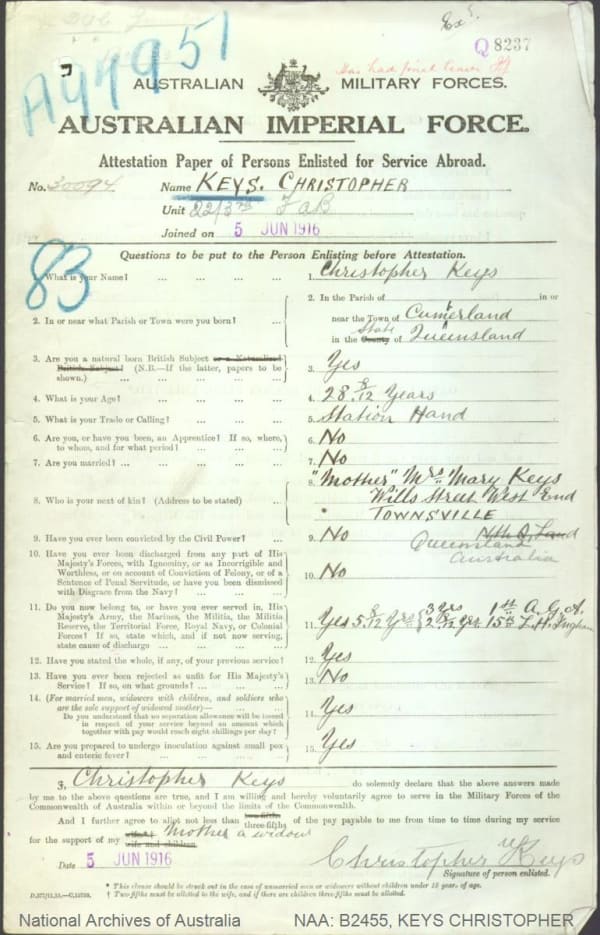 Exd.
A44951
Q 8237
AUSTRALIAN MILITARY FORCES.
AUSTRALIAN IMPERIAL FORCE.
Attestation Paper of Persons Enlisted for Service Abroad.
No. 30094 Name KEYS. CHRISTOPHER
Unit 22/3rd F a B
Joined on 5 JUN 1916
83
Questions to be put to the Person Enlisting before Attestation.
1. What is your Name? ... ... ... ... 1. Christopher Keys
2. In or near what Parish or Town were you born? ... 2. In the Parish of in or
near the Town of Cumberland
in the County State of Queensland
3. Are you a natural born British Subject or a Naturalised
British Subject? (N.B.—If the latter, papers to be
shown.) ... ... ... ... ... 3. Yes
4. What is your Age? ... ... ... ... 4. 28 8/12 Years
5. What is your Trade or Calling? ... ... ... 5. Station Hand
6. Are you, or have you been, an Apprentice? If so, where,
to whom, and for what period? ... ... ... 6. No
7. Are you married? ... ... ... ... 7. No
8. Who is your next of kin? (Address to be stated) ... 8. "Mother" Mrs Mary Keys
Wills Street West End
TOWNSVILLE
Nth Q.Land
Queensland
Australia
9. Have you ever been convicted by the Civil Power? ... 9. No
10. Have you ever been discharged from any part of His
Majesty's Forces, with Ignominy, or as Incorrigible and
Worthless, or on account of Conviction of Felony, or of a
Sentence of Penal Servitude, or have you been dismissed
with Disgrace from the Navy? ... ... ... 10. No
11. Do you now belong to, or have you ever served in, His
Majesty's Army, the Marines, the Militia, the Militia
Reserve, the Territorial Force, Royal Navy, or Colonial
Forces? If so, state which, and if not now serving,
state cause of discharge ... ... ... ... 11. Yes 5 8/12 Yrs { 3 Yrs 1st A.G.A.
2 8/12 yrs. 15th L.H. Ingham
12. Have you stated the whole, if any, of your previous service? 12. Yes
13. Have you ever been rejected as unfit for His Majesty's
Service? If so, on what grounds? ... ... ... 13. No
14. (For married men, widowers with children, and soldiers who
are the sole support of widowed mother)—
Do you understand that no separation allowance will be issued
in respect of your service beyond an amount which
together with pay would reach eight shillings per day? ... 14. Yes
15. Are you prepared to undergo inoculation against small pox
and enteric fever? ... ... ... ... 15. Yes
I, Christopher Keys do solemnly declare that the above answers made
by me to the above questions are true, and I am willing and hereby voluntarily agree to serve in the Military Forces of the
Commonwealth of Australia within or beyond the limits of the Commonwealth.
And I further agree to allot not less than two-fifths three-fifths of the pay payable to me from time to time during my service
for the support of my wife and children mother a widow
Date 5 JUN 1916 Christopher Keys
Signature of person enlisted.
* This clause should be struck out in the case of unmarried men or widowers without children under 18 years of age.
† Two-fifths must be allotted to the wife, and if there are children three-fifths must be allotted.
National Archives of Australia NAA: B2455, KEYS CHRISTOPHER